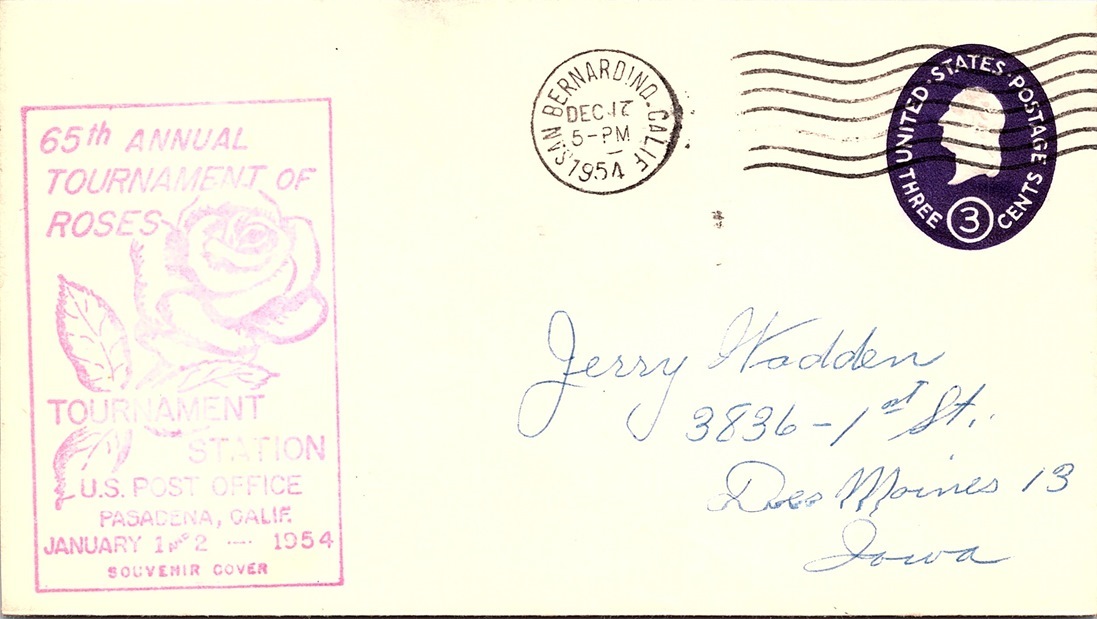 65th ANNUAL
TOURNAMENT OF
ROSES
TOURNAMENT
STATION
U.S. POST OFFICE
PASADENA, CALIF.
JANUARY 1 AND 2 — 1954
SOUVENIR COVER
SAN BERNARDINO-CALIF
DEC 17
5-PM
1954
UNITED·STATES·POSTAGE
THREE 3 CENTS
Jerry Wadden
3836-1st St.
Des Moines 13
Iowa